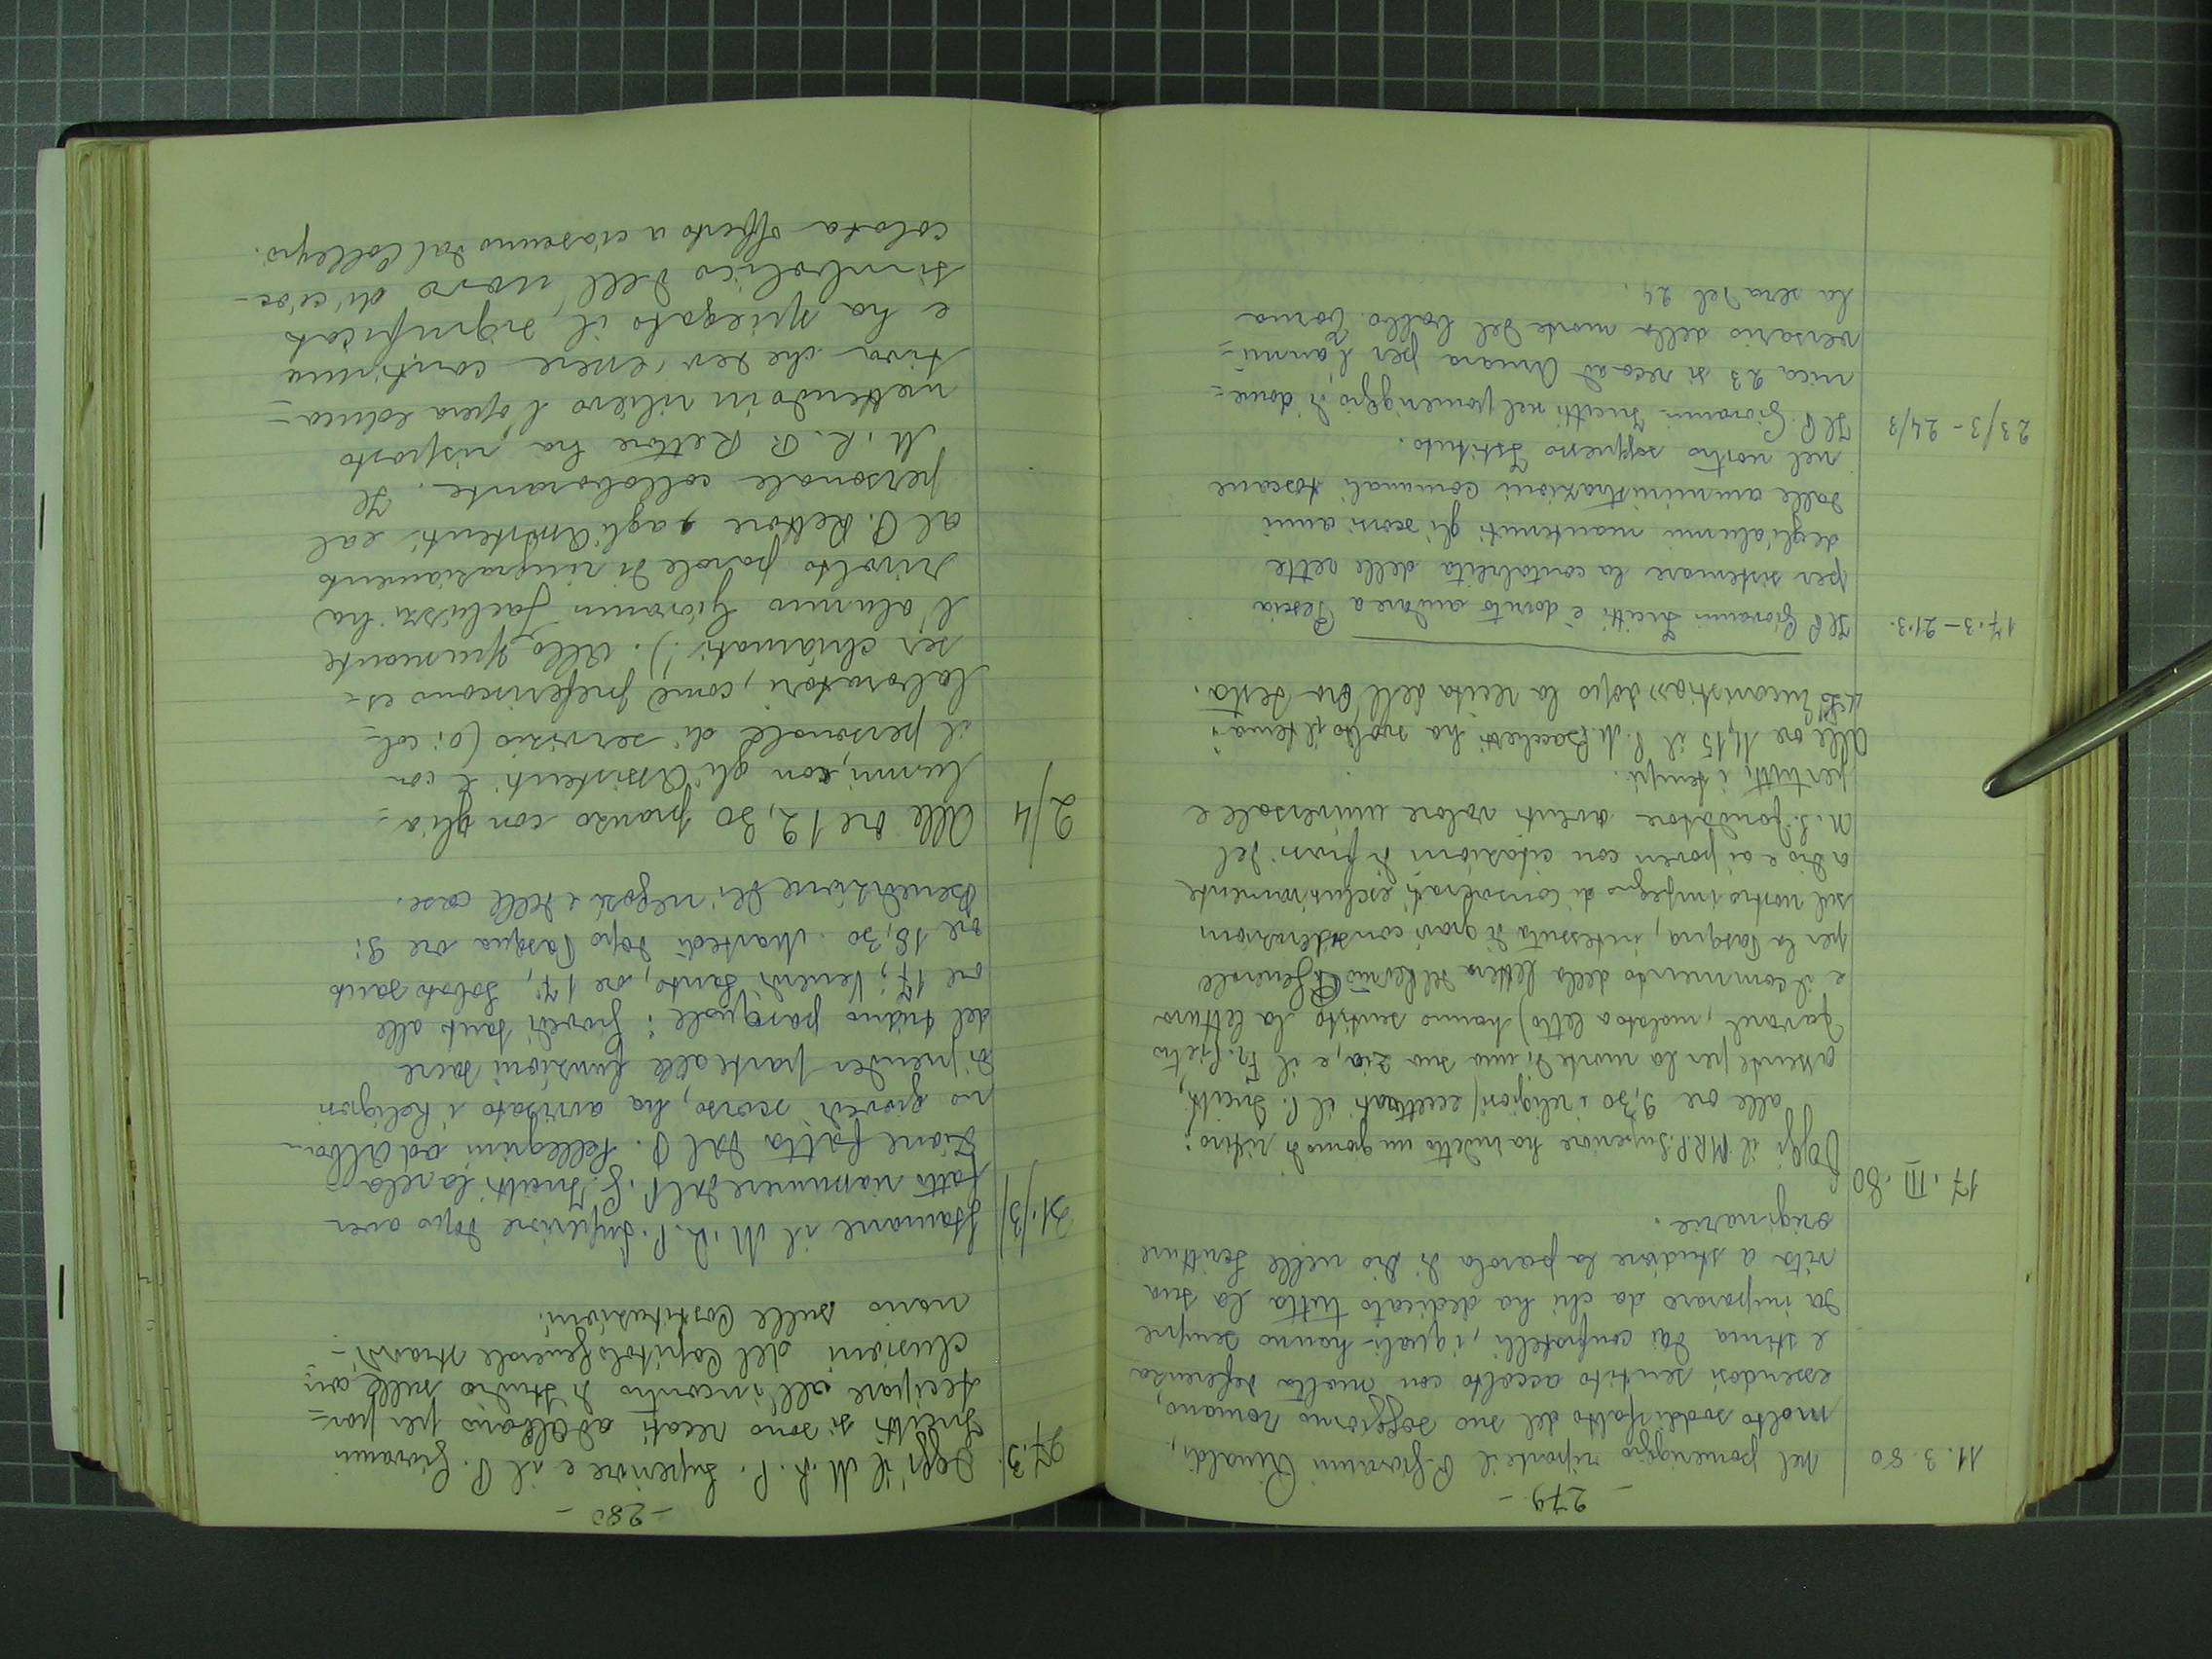 - 279 -
11. 3. 80 Nel pomeriggio riparte il P. Giovanni Rinaldi,
molto soddisfatto del suo soggiorno romano,
essendosi sentito accolto con molta deferenza
e stima dai confratelli, i quali hanno sempre
da imparare da chi ha dedicato tutta la sua
vita a studiare la parola di Dio nelle Scritture
originarie.
17. III. 80 Oggi il M.R.P. Superiore ha indetto un giorno di ritiro:
alle ore 9,30 i religiosi (eccettuati il P. Incitti,
assente per la morte di una sua zia, e il Fr. Pietro
, malato a letto) hanno sentito la lettura
e il commento della lettera del P. Generale
per la Pasqua, intessuta di gravi considerazioni
sul nostro impegno di consacrati esclusivamente
a Dio e ai poveri con citazioni di frasi del
N. S. Fondatore aventi valore universale e
per tutti i tempi.
Alle ore 11,15 il P. M. Bacchetti ha svolto il tema:
dopo la recita dell'Ora Sesta.
17.3 - 21.3. Il P. Giovanni Incitti è dovuto andare a Pescia
per sistemare la contabilità delle rette
degli alunni mantenuti gli scorsi anni
dalle amministrazioni comunali toscane
nel nostro soppresso Istituto.
23/3 - 24/3 Il P. Giovanni Incitti nel pomeriggio di dome=
nica 23 si reca ad Amara per l'anni=
versario della morte del babbo. Torna
la sera del 24.
- 280 -
27.3. Oggi il M. R. P. Superiore e il P. Giovanni
Incitti si sono recati ad Albano per par=
tecipare all'incontro di studio sulle con=
clusioni del Capitolo Generale straordi=
nario sulle Costituzioni.
31/3/ Stamane il M. R. P. Superiore dopo aver
fatto riassumere dal P. G. Incitti la rela=
zione fatta dal P. Pellegrini ad Alba=
no giovedì scorso, ha avvisato i Religiosi
di prender parte alle funzioni sacre
del triduo pasquale: giovedì santo alle
ore 17; Venerdì Santo, ore 17; Sabato santo
ore 18,30. Martedì dopo Pasqua ore 9:
Benedizione dei negozi e delle case.
2/4 Alle ore 12,30 pranzo con gli a=
lunni, con gli Assistenti e con
il personale di servizio (o i col=
laboratori, come preferiscono es=
ser chiamati!). Allo spumante
l'alunno Giovanni ha
rivolto parole di ringraziamento
al P. Rettore, agli Assistenti e al
personale collaborante. Il
M. R. P. Rettore ha risposto
mettendo in rilievo l'opera educa=
tiva che dev'essere continua
e ha spiegato il significato
simbolico dell'uovo di cioc=
colata offerto a ciascuno dal Collegio.